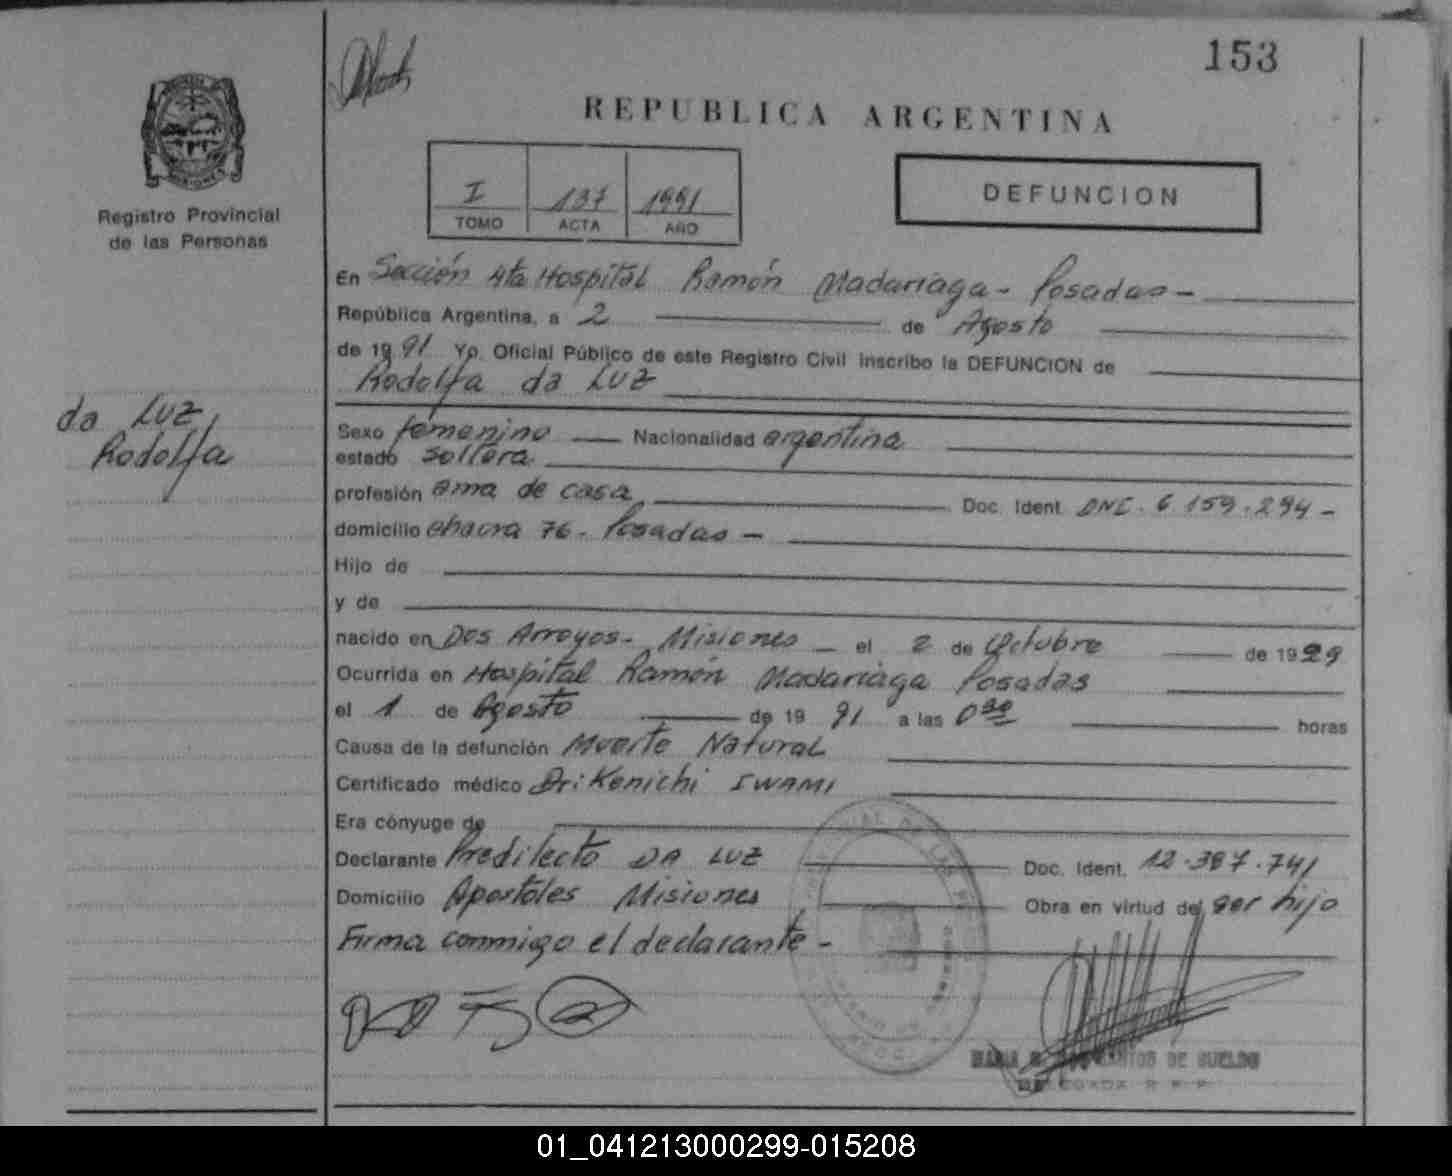 153
REPUBLICA ARGENTINA
MISIONES
Registro Provincial
de las Personas
I 137 1991
TOMO ACTA AÑO
DEFUNCION
En Sección 4ta Hospital Ramón Madariaga - Posadas -
República Argentina, a 2 de Agosto
de 1991 Yo, Oficial Público de este Registro Civil inscribo la DEFUNCION de
Rodolfa da LUZ
da LUZ,
Rodolfa
Sexo femenino Nacionalidad argentina
estado soltera
profesión ama de casa Doc. Ident. DNI. 6.159.294 -
domicilio chacra 76 - Posadas -
Hijo de
y de
nacido en Dos Arroyos - Misiones el 2 de Octubre de 1929
Ocurrida en Hospital Ramón Madariaga Posadas
el 1 de Agosto de 1991 a las 0 30 horas
Causa de la defunción Muerte Natural
Certificado médico Dr: Kenichi IWAMI
Era cónyuge de
Declarante Predilecto DA LUZ Doc. Ident. 12.387.741
Domicilio Apostoles Misiones Obra en virtud de ser hijo
Firma conmigo el declarante -
01_041213000299-015208